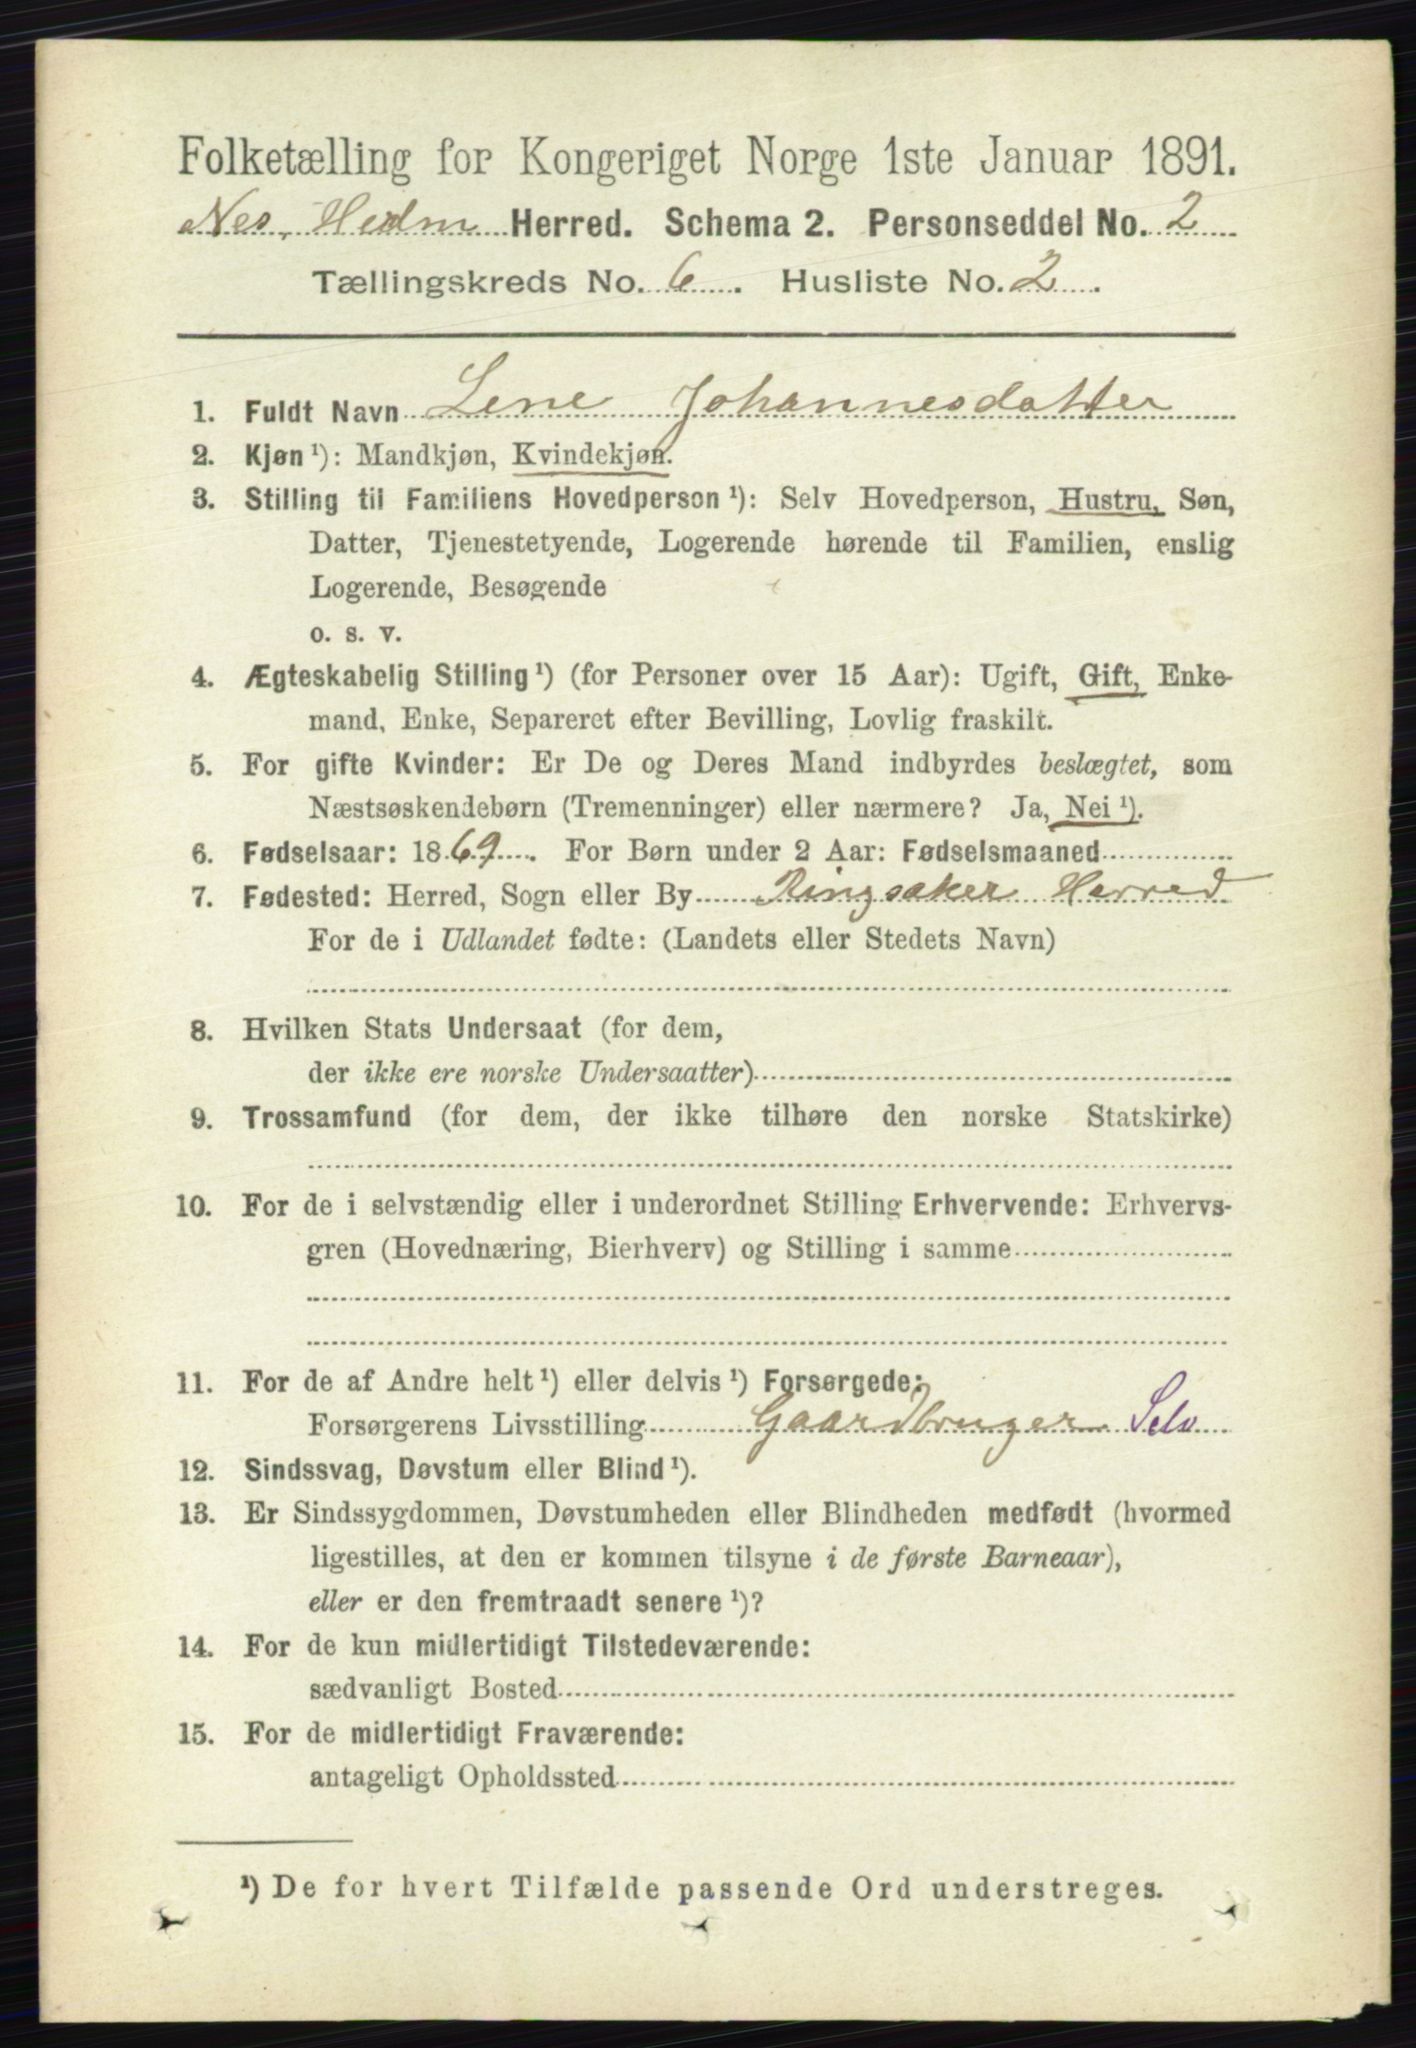 Folketælling for Kongeriget Norge 1ste Januar 1891.
Nes, Hedm Herred. Schema 2. Personseddel No. 2
Tællingskreds No. 6. Husliste No. 2.
1. Fuldt Navn Lene Johannesdatter
2. Kjøn ¹): Mandkjøn, Kvindekjøn.
3. Stilling til Familiens Hovedperson ¹): Selv Hovedperson, Hustru, Søn,
Datter, Tjenestetyende, Logerende hørende til Familien, enslig
Logerende, Besøgende
o. s. v.
4. Ægteskabelig Stilling ¹) (for Personer over 15 Aar): Ugift, Gift, Enke-
mand, Enke, Separeret efter Bevilling, Lovlig fraskilt.
5. For gifte Kvinder: Er De og Deres Mand indbyrdes beslægtet, som
Næstsøskendebørn (Tremenninger) eller nærmere? Ja, Nei ¹).
6. Fødselsaar: 1869. For Børn under 2 Aar: Fødselsmaaned
7. Fødested: Herred, Sogn eller By Ringsaker Herred
For de i Udlandet fødte: (Landets eller Stedets Navn)
8. Hvilken Stats Undersaat (for dem,
der ikke ere norske Undersaatter)
9. Trossamfund (for dem, der ikke tilhøre den norske Statskirke)
10. For de i selvstændig eller i underordnet Stilling Erhvervende: Erhvervs-
gren (Hovednæring, Bierhverv) og Stilling i samme
11. For de af Andre helt ¹) eller delvis ¹) Forsørgede:
Forsørgerens Livsstilling Gaardbruger Selv
12. Sindssvag, Døvstum eller Blind ¹).
13. Er Sindssygdommen, Døvstumheden eller Blindheden medfødt (hvormed
ligestilles, at den er kommen tilsyne i de første Barneaar),
eller er den fremtraadt senere ¹)?
14. For de kun midlertidigt Tilstedeværende:
sædvanligt Bosted
15. For de midlertidigt Fraværende:
antageligt Opholdssted
¹) De for hvert Tilfælde passende Ord understreges.